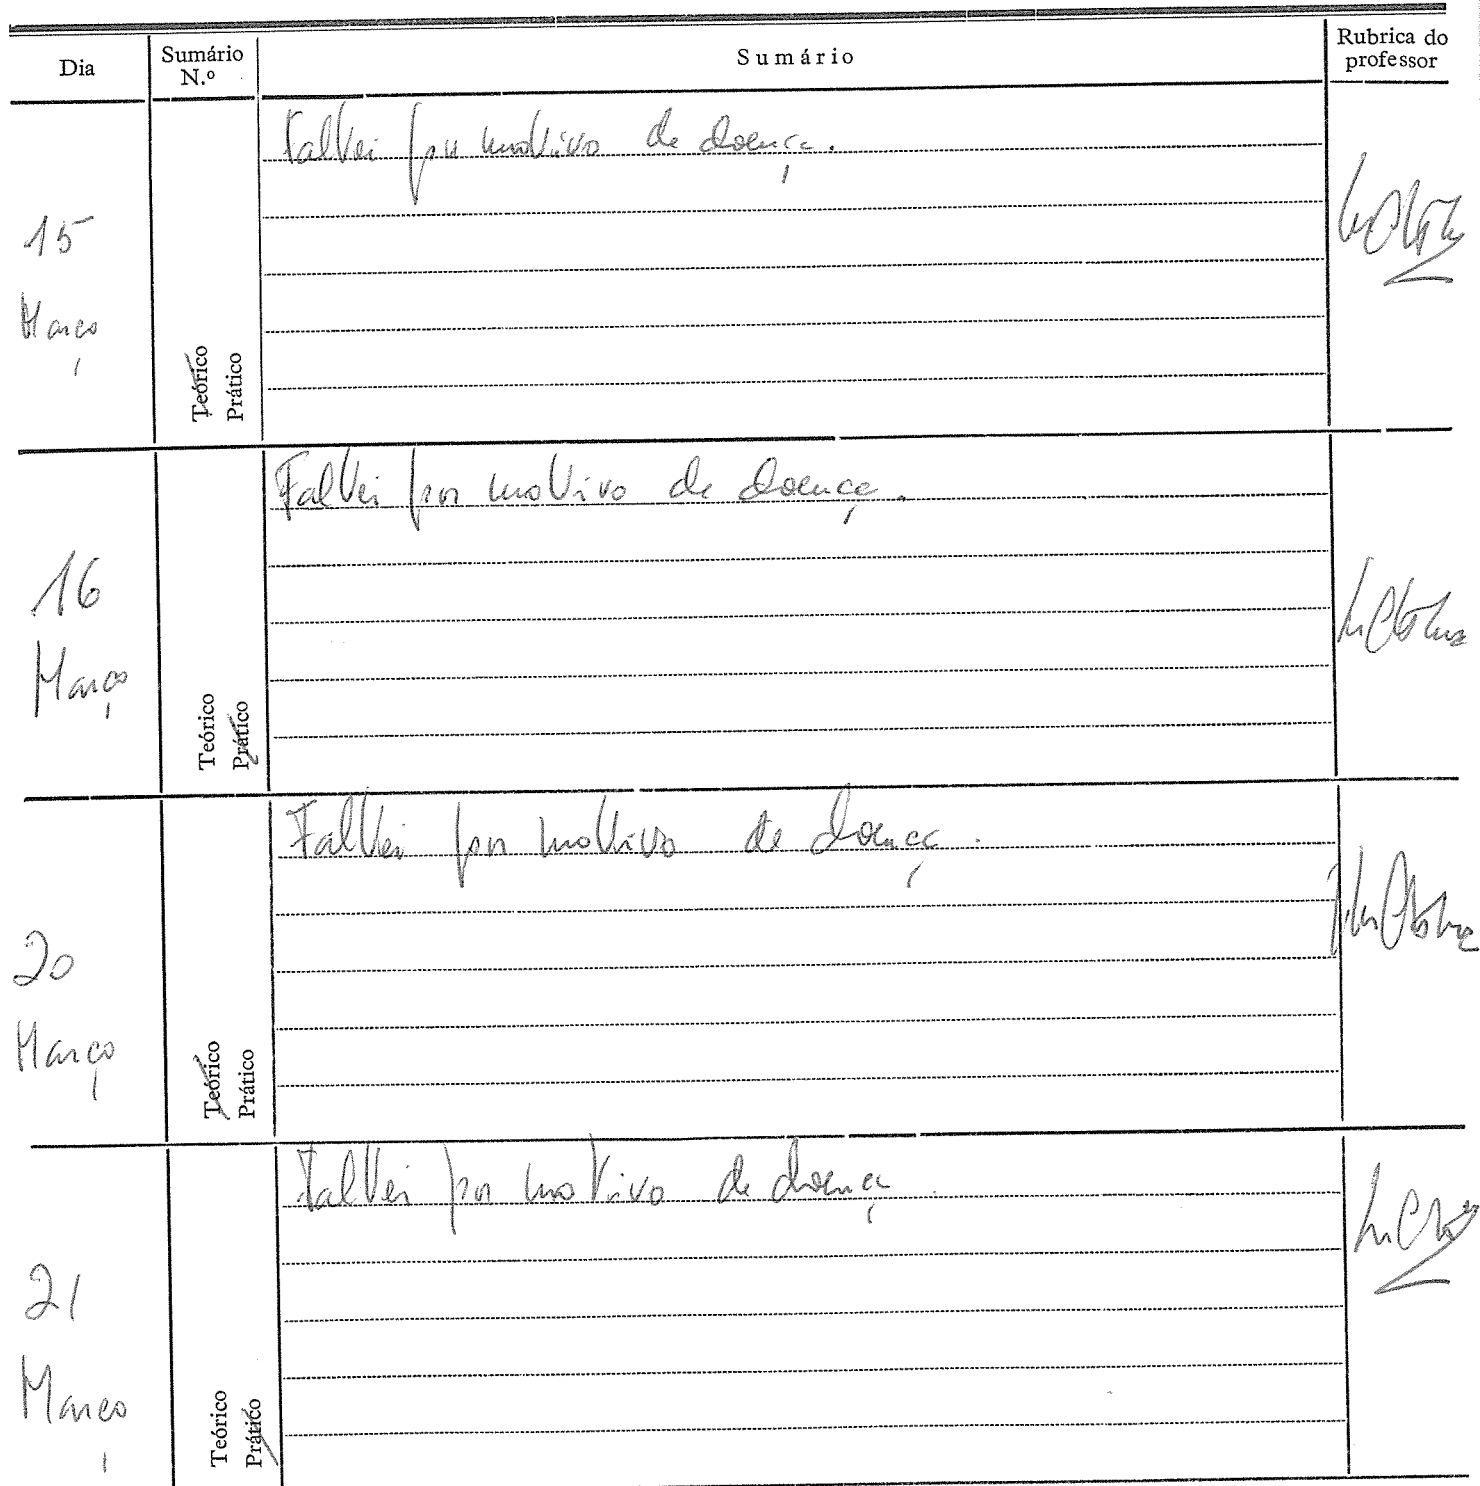 Dia
Sumário N.º
Sumário
Rubrica do professor
15 Março
Teórico
Prático
Faltei por motivo de doença.
16 Março
Teórico
Prático
Faltei por motivo de doença.
20 Março
Teórico
Prático
Faltei por motivo de doença.
21 Março
Teórico
Prático
Faltei por motivo de doença.